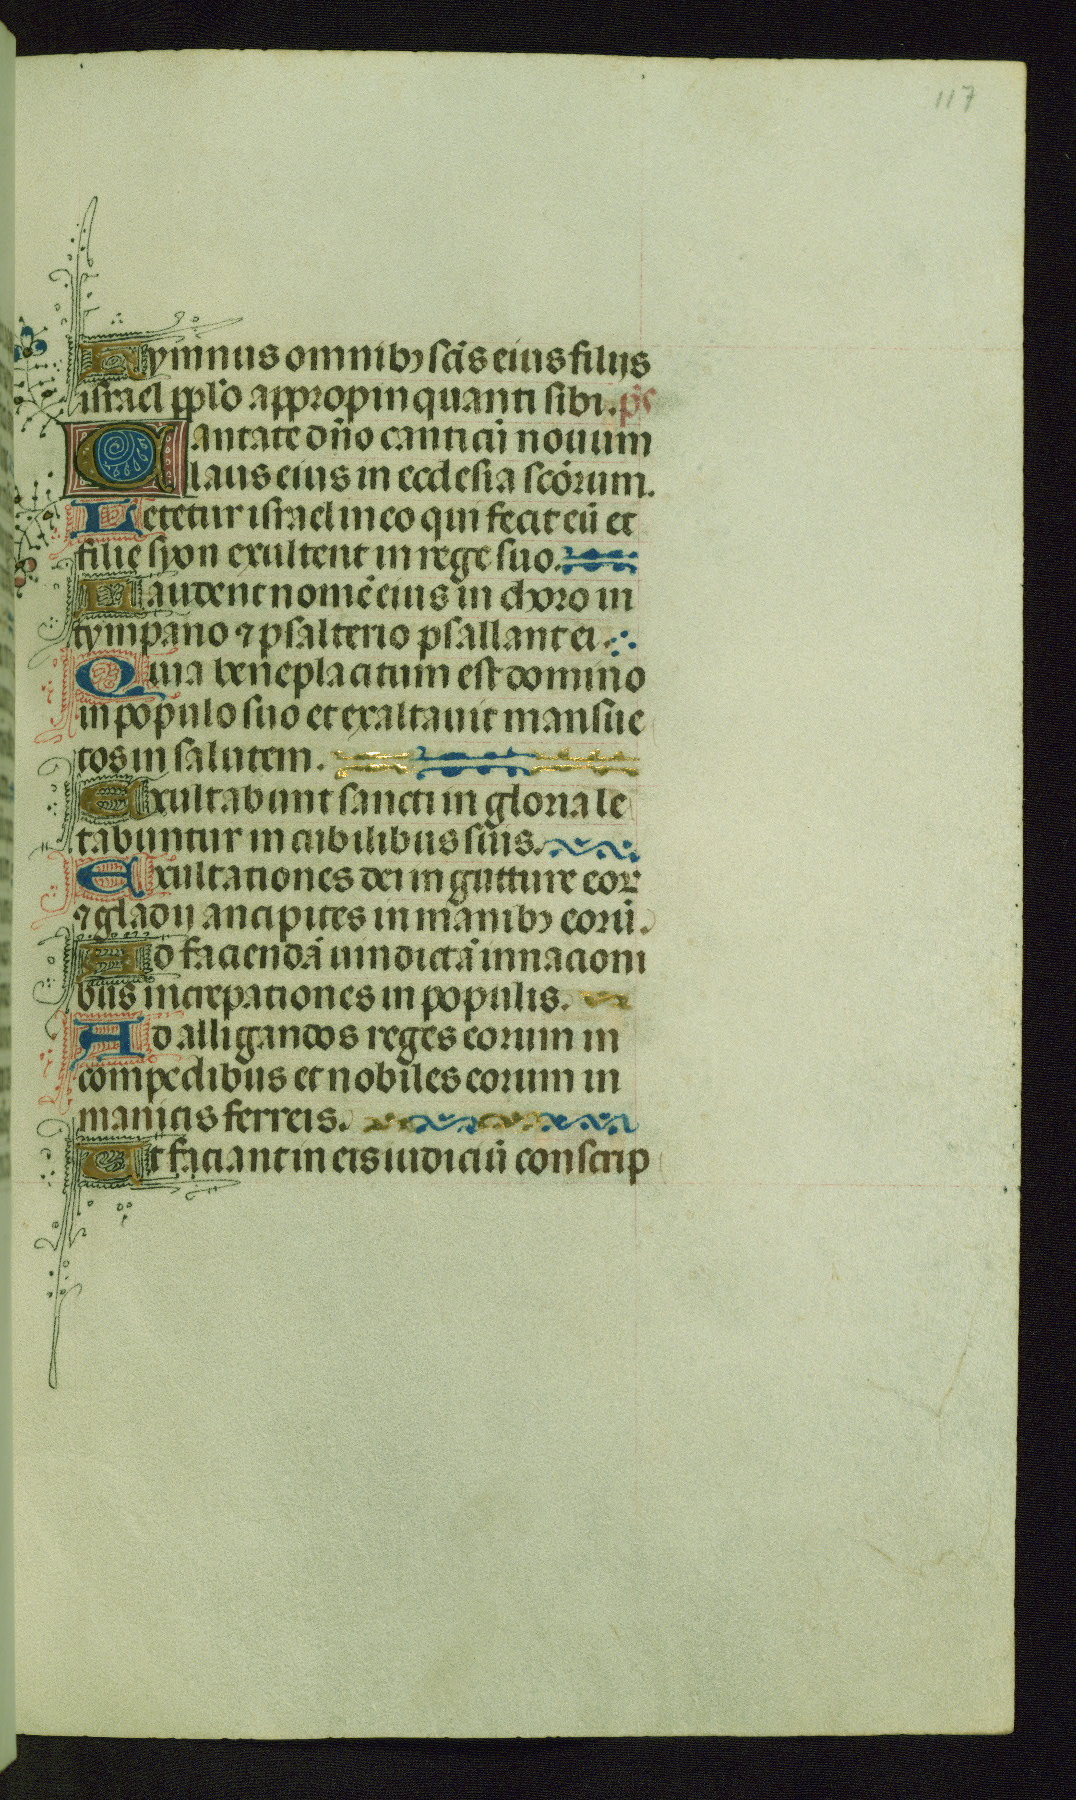 117
Hymnus omnibꝫ sc̄is eius filijs
israel pplo̅ appropinquanti sibi. ps̄
Cantate dn̄o canticū nouum
laus eius in ecclesia sc̄orum.
Letetur israel in eo qui fecit eū et
filie syon exultent in rege suo.
Laudent nomē eius in choro in
tympano ⁊ psalterio psallant ei.
Quia beneplacitum est domino
in populo suo et exaltauit mansue
tos in salutem.
Exultabunt sancti in gloria le
tabuntur in cubilibus suis.
Exultationes dei in gutture eoꝝ
⁊ gladij ancipites in manibꝫ eorū.
Ad faciendā uindictā in nacioni
bus increpationes in populis.
Ad alligandos reges eorum in
compedibus et nobiles eorum in
manicis ferreis.
Ut faciant in eis iudiciū conscrip